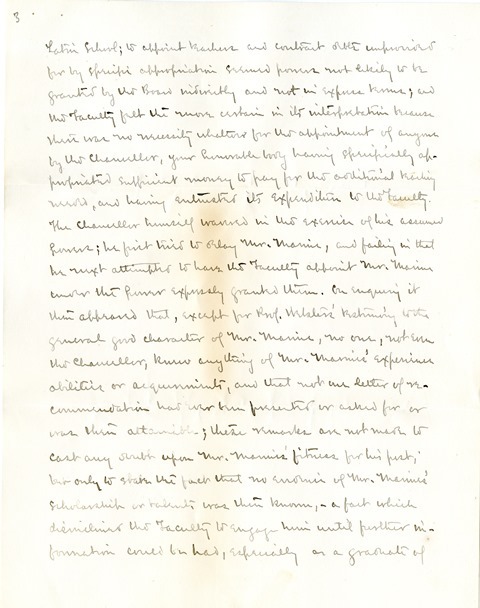 3
Latin School; to appoint teachers and contract debts unprovided
for by specific appropriation seemed powers not likely to be
granted by the Board indirectly and not in express terms; and
the Faculty felt the more certain in its interpretation because
there was no necessity whatever for the appointment of anyone
by the Chancellor, your honorable body having specifically ap-
propriated sufficient money to pay for the additional teaching
need, and having entrusted its expenditure to the Faculty.
The Chancellor himself wavered in the exercise of his assumed
powers; he first tried to delay Mr. and failing in that
he next attempted to have the Faculty appoint Mr.
under the power expressly granted them. On enquiry it
then appeared that, except for Prof. testimony to the
general good character of Mr. no one, not even
the Chancellor, knew anything of Mr. experience
abilities or acquirements, and that not one letter of re-
commendation had ever been presented or asked for or
was then attainable; these remarks are not made to
cast any doubt upon Mr. fitness for his post,
but only to state the fact that no evidence of Mr.
scholarship or talents was then known, - a fact which
disinclined the Faculty to engage him until further in-
formation could be had, especially as a graduate of